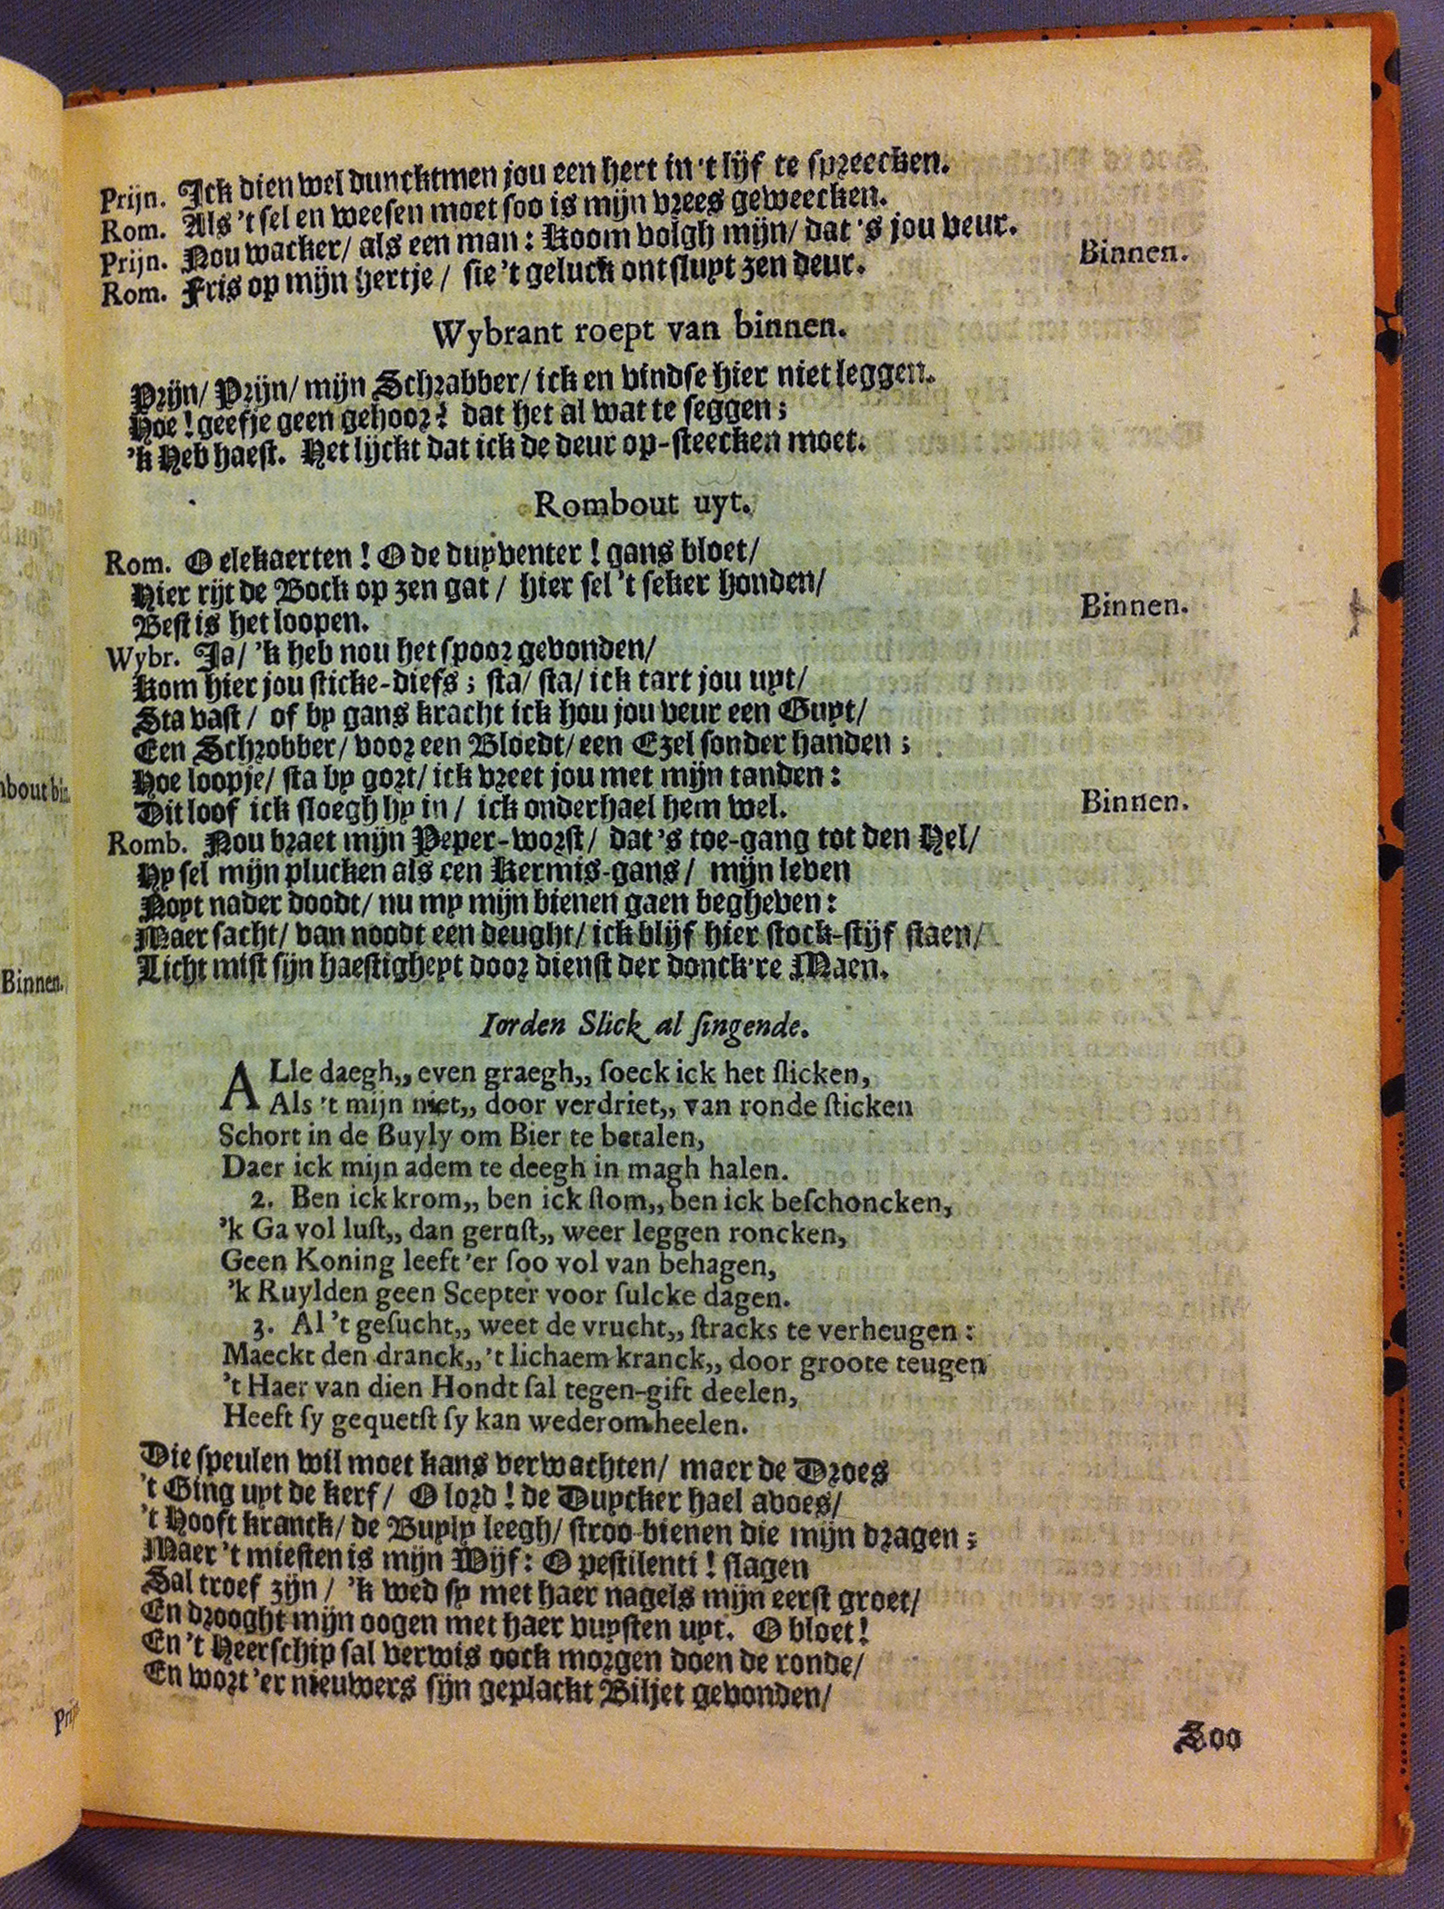 Prijn. Ick dien wel dunckt men jou een hert in 't lijf te spreecken.
Rom. Als 't sel en weesen moet soo is mijn vrees geweecken.
Prijn. Nou wacker/ als een man: Koom volgh mijn/ dat 's jou veur.
Rom. Fris op mijn hertje/ sie 't geluck ontslupt zen deur. Binnen.
Wybrant roept van binnen.
Prijn/ Prijn/ mijn Schrabber/ ick en vindse hier niet leggen.
Hoe! geefje geen gehoor? dat het al wat te seggen;
'k Heb haest. Het lijckt dat ick de deur op-steecken moet.
Rombout uyt.
Rom. O elekaerten! O de duyventer! gans bloet/
Hier rijt de Bock op zen gat/ hier sel 't seker honden/
Best is het loopen. Binnen.
Wybr. Ja/ 'k heb nou het spoor gevonden/
Kom hier jou sticke-diefs; sta/ sta/ ick tart jou uyt/
Sta vast/ of by gans kracht ick hou jou veur een Guyt/
Een Schrobber/ voor een Bloedt/ een Ezel sonder handen;
Hoe loopje/ sta by gort/ ick vreet jou met mijn tanden:
Dit loof ick sloegh hy in/ ick onderhael hem wel. Binnen.
Romb. Nou braet mijn Peper-worst/ dat 's toe-gang tot den Hel/
Hy sel mijn plucken als een Kermis-gans/ mijn leven
Noyt nader doodt/ nu my mijn bienen gaen begheven:
Maer sacht/ van noodt een deught/ ick blijf hier stock-stijf staen/
Licht mist sijn haestigheyt door dienst der donck're Maen.
Iorden Slick al singende.
ALle daegh,, even graegh,, soeck ick het slicken,
Als 't mijn niet,, door verdriet,, van ronde sticken
Schort in de Buyly om Bier te betalen,
Daer ick mijn adem te deegh in magh halen.
2. Ben ick krom,, ben ick stom,, ben ick beschoncken,
'k Ga vol lust,, dan gerust,, weer leggen roncken,
Geen Koning leeft 'er soo vol van behagen,
'k Ruylden geen Scepter voor sulcke dagen.
3. Al 't gesucht,, weet de vrucht,, stracks te verheugen:
Maeckt den dranck,, 't lichaem kranck,, door groote teugen
't Haer van dien Hondt sal tegen-gift deelen,
Heeft sy gequetst sy kan wederom heelen.
Die speulen wil moet kans verwachten/ maer de Droes
't Ging uyt de kerf/ O lord! de Duycker hael avoes/
't Hooft kranck/ de Buyly leegh/ stroo-bienen die mijn dragen;
Maer 't miesten is mijn Wijf: O pestilenti! slagen
Sal troef zijn/ 'k wed sy met haer nagels mijn eerst groet/
En drooght mijn oogen met haer vuysten uyt. O bloet!
En 't Heerschip sal verwis oock morgen doen de ronde/
En wort 'er nieuwers sijn geplackt Biljet gevonden/
Soo